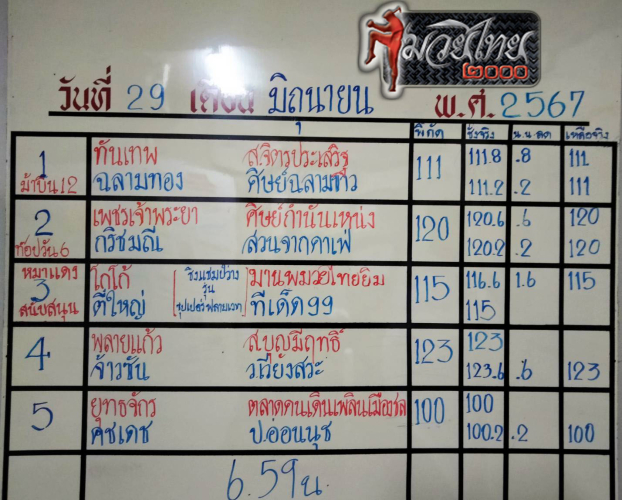 มวยไทย
๒๐๐๐
วันที่ 29 เดือน มิถุนายน พ.ศ. 2567
พิกัด ชั่งจริง น.น.ลด เหลือจริง
1 ทันเทพ ส.จิตรประเสริฐ 111 111.8 .8 111
ม้าบิน 12 ฉลามทอง ศิษย์ฉลามขาว 111.2 .2 111
2 เพชรเจ้าพระยา ศิษย์กำนันเหน่ง 120 120.6 .6 120
ท๊อปวัน 6 กริชมณี สวนจากคาเฟ่ 120.2 .2 120
หมาแดง
3 โกโก้ ชิงแชมป์ว่าง มานพมวยไทยยิม 115 116.6 1.6 115
รุ่น
สนับสนุน ตี๋ใหญ่ ซุปเปอร์ฟลายเวท ทีเด็ด 99 115
4 พลายแก้ว ส.บุญมีฤทธิ์ 123 123
จ้าวซัน ว.เวียงสระ 123.6 .6 123
5 ยุทธจักร ตลาดคนเดินเพลินเมืองชล 100 100
คชเดช ป.อ่อนนุช 100.2 .2 100
6.59 น.